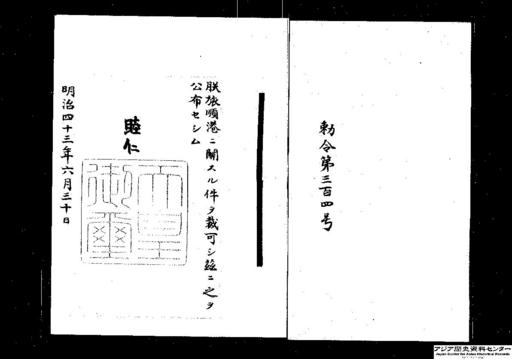 勅令第三百四号
朕旅順港ニ關スル件ヲ裁可シ茲ニ之ヲ
公布セシム
睦仁
天皇
御璽
明治四十三年六月三十日
アジア歴史資料センター
Japan Center for Asian Historical Records